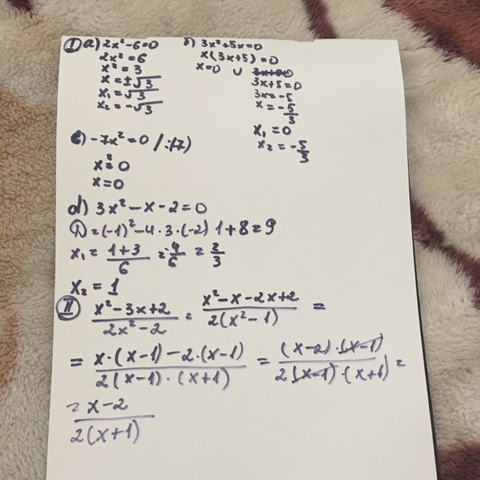 I a) 2x²-6=0
2x²=6
x²=3
x=±√3
x₁=√3
x₂=-√3
б) 3x²+5x=0
x(3x+5)=0
x=0 ∪
3x+5=0
3x=-5
x=-5/3
x₁=0
x₂=-5/3
c) -7x²=0 /:(7)
x²=0
x=0
d) 3x²-x-2=0
D=(-1)²-4·3·(-2) 1+8=9
x₁= (1+3)/6 = 4/6 = 2/3
x₂=1
II (x²-3x+2)/(2x²-2) = (x²-x-2x+2)/(2(x²-1)) =
= (x·(x-1)-2·(x-1))/(2(x-1)·(x+1)) = ((x-2)·(x-1))/(2(x-1)·(x+1)) =
= (x-2)/(2(x+1))